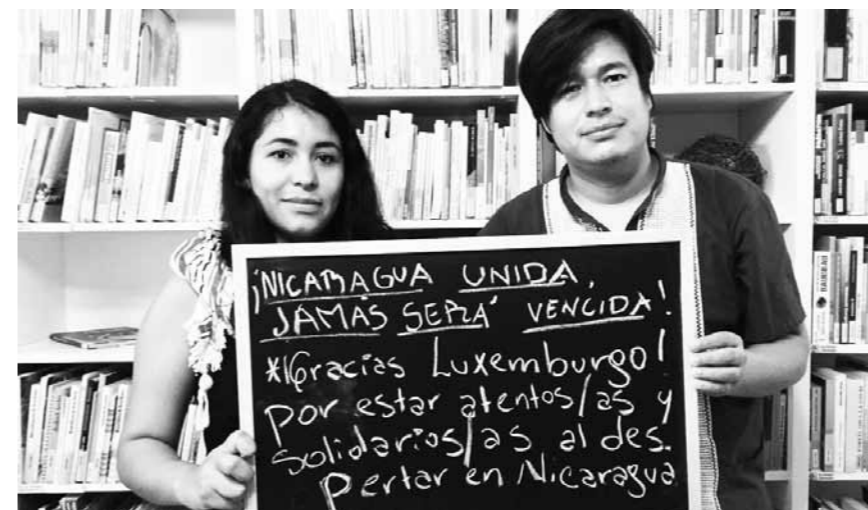 ¡NICARAGUA UNIDA,
JAMÁS SERÁ VENCIDA!
*¡Gracias Luxemburgo!
por estar atentos/as y
solidarios/as al des.
pertar en Nicaragua